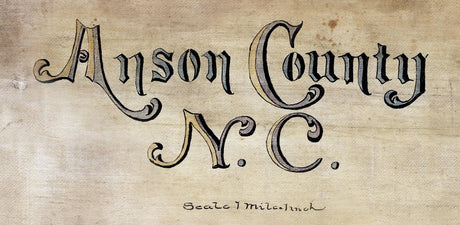 Anson County
N. C.
Scale 1 Mile=Inch